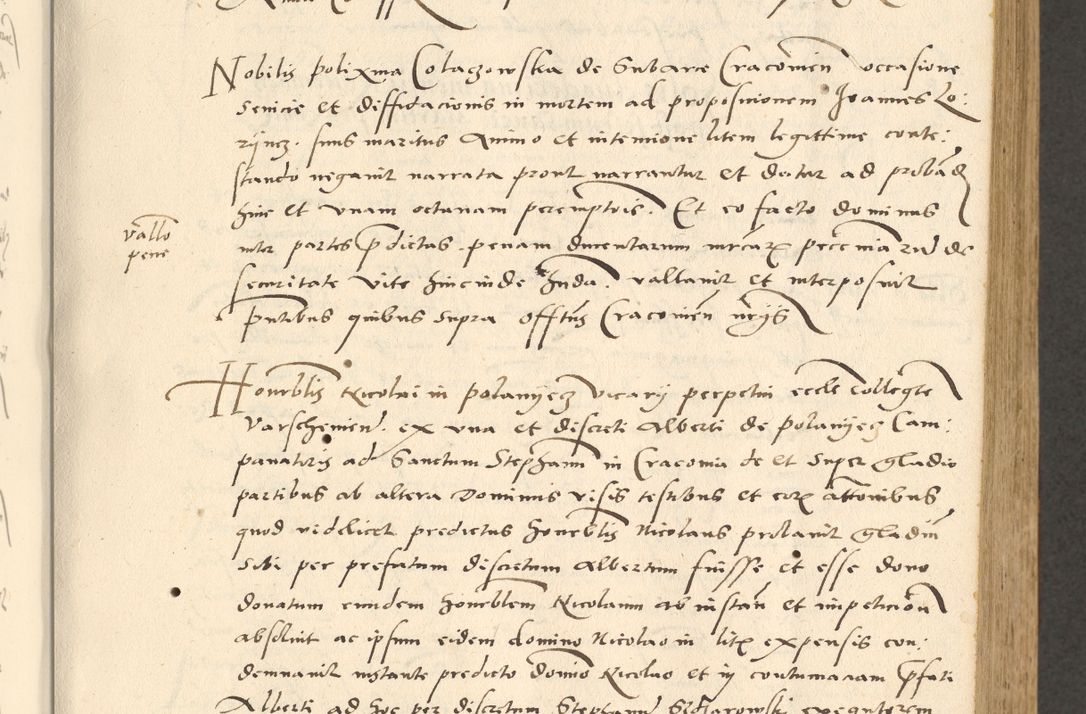 Nobilis Polixina Colaczowska de Subarce Cracovien occasione
senicie et diffidacionis in mortem ad propositionem Joannes Lo:
rijncz. suus maritus animo et intencione litem legittime conte:
stando negavit narrata prout narrantur et datur ad proband
hinc et unam octavam peremptorie. Et eo facto dominus
inter partes pdictas penam ducentarum mrcarz peccuniarum de
vallo
pene
securitate vite hincinde, vallavit et interposuit
Pntibus quibus supra offtus Cracovien nrijs
Honrblis Nicolai in Polanijecz vicarij perpetui eccle collegte
Varschevien. ex una et discreti Alberti de Polanijecz Cam:
panatoris ad Sanctum Stephanum in Cracovia de et super gladio
partibus ab altera Dominus visis testibus et eorz attonibus
quod videlicet predictus honrblis Nicolaus probavit gladiu
sibi per prefatum discretum Albertum fuisse et esse dono
donatum eundem honrblem Nicolaum ab instan et impeticion
absolvit ac ipsum eidem domino Nicolao in litis expensis con:
demnavit instante predicto domino Nicolao et in contumaciam pfati
Alberti ad hoc per discretum Stephanum executorem